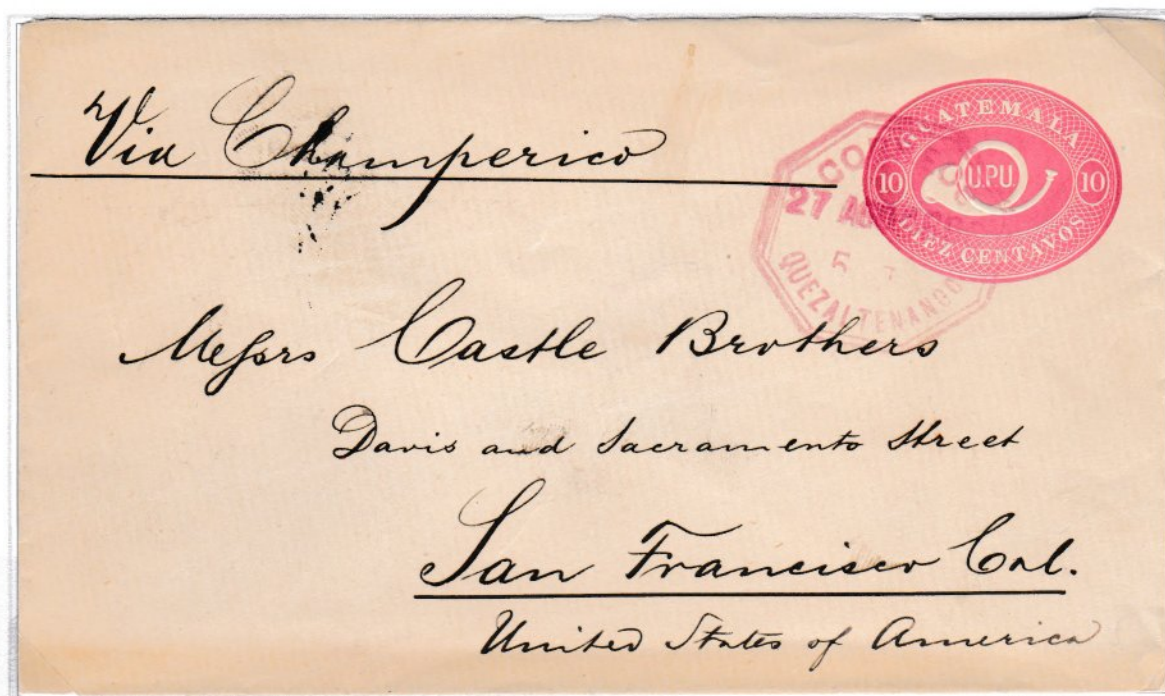 Via Champerico
GUATEMALA
U.P.U.
10 10
DIEZ CENTAVOS
27
5
QUEZALTENANGO
Messrs Castle Brothers
Davis and Sacramento Street
San Francisco Cal.
United States of America